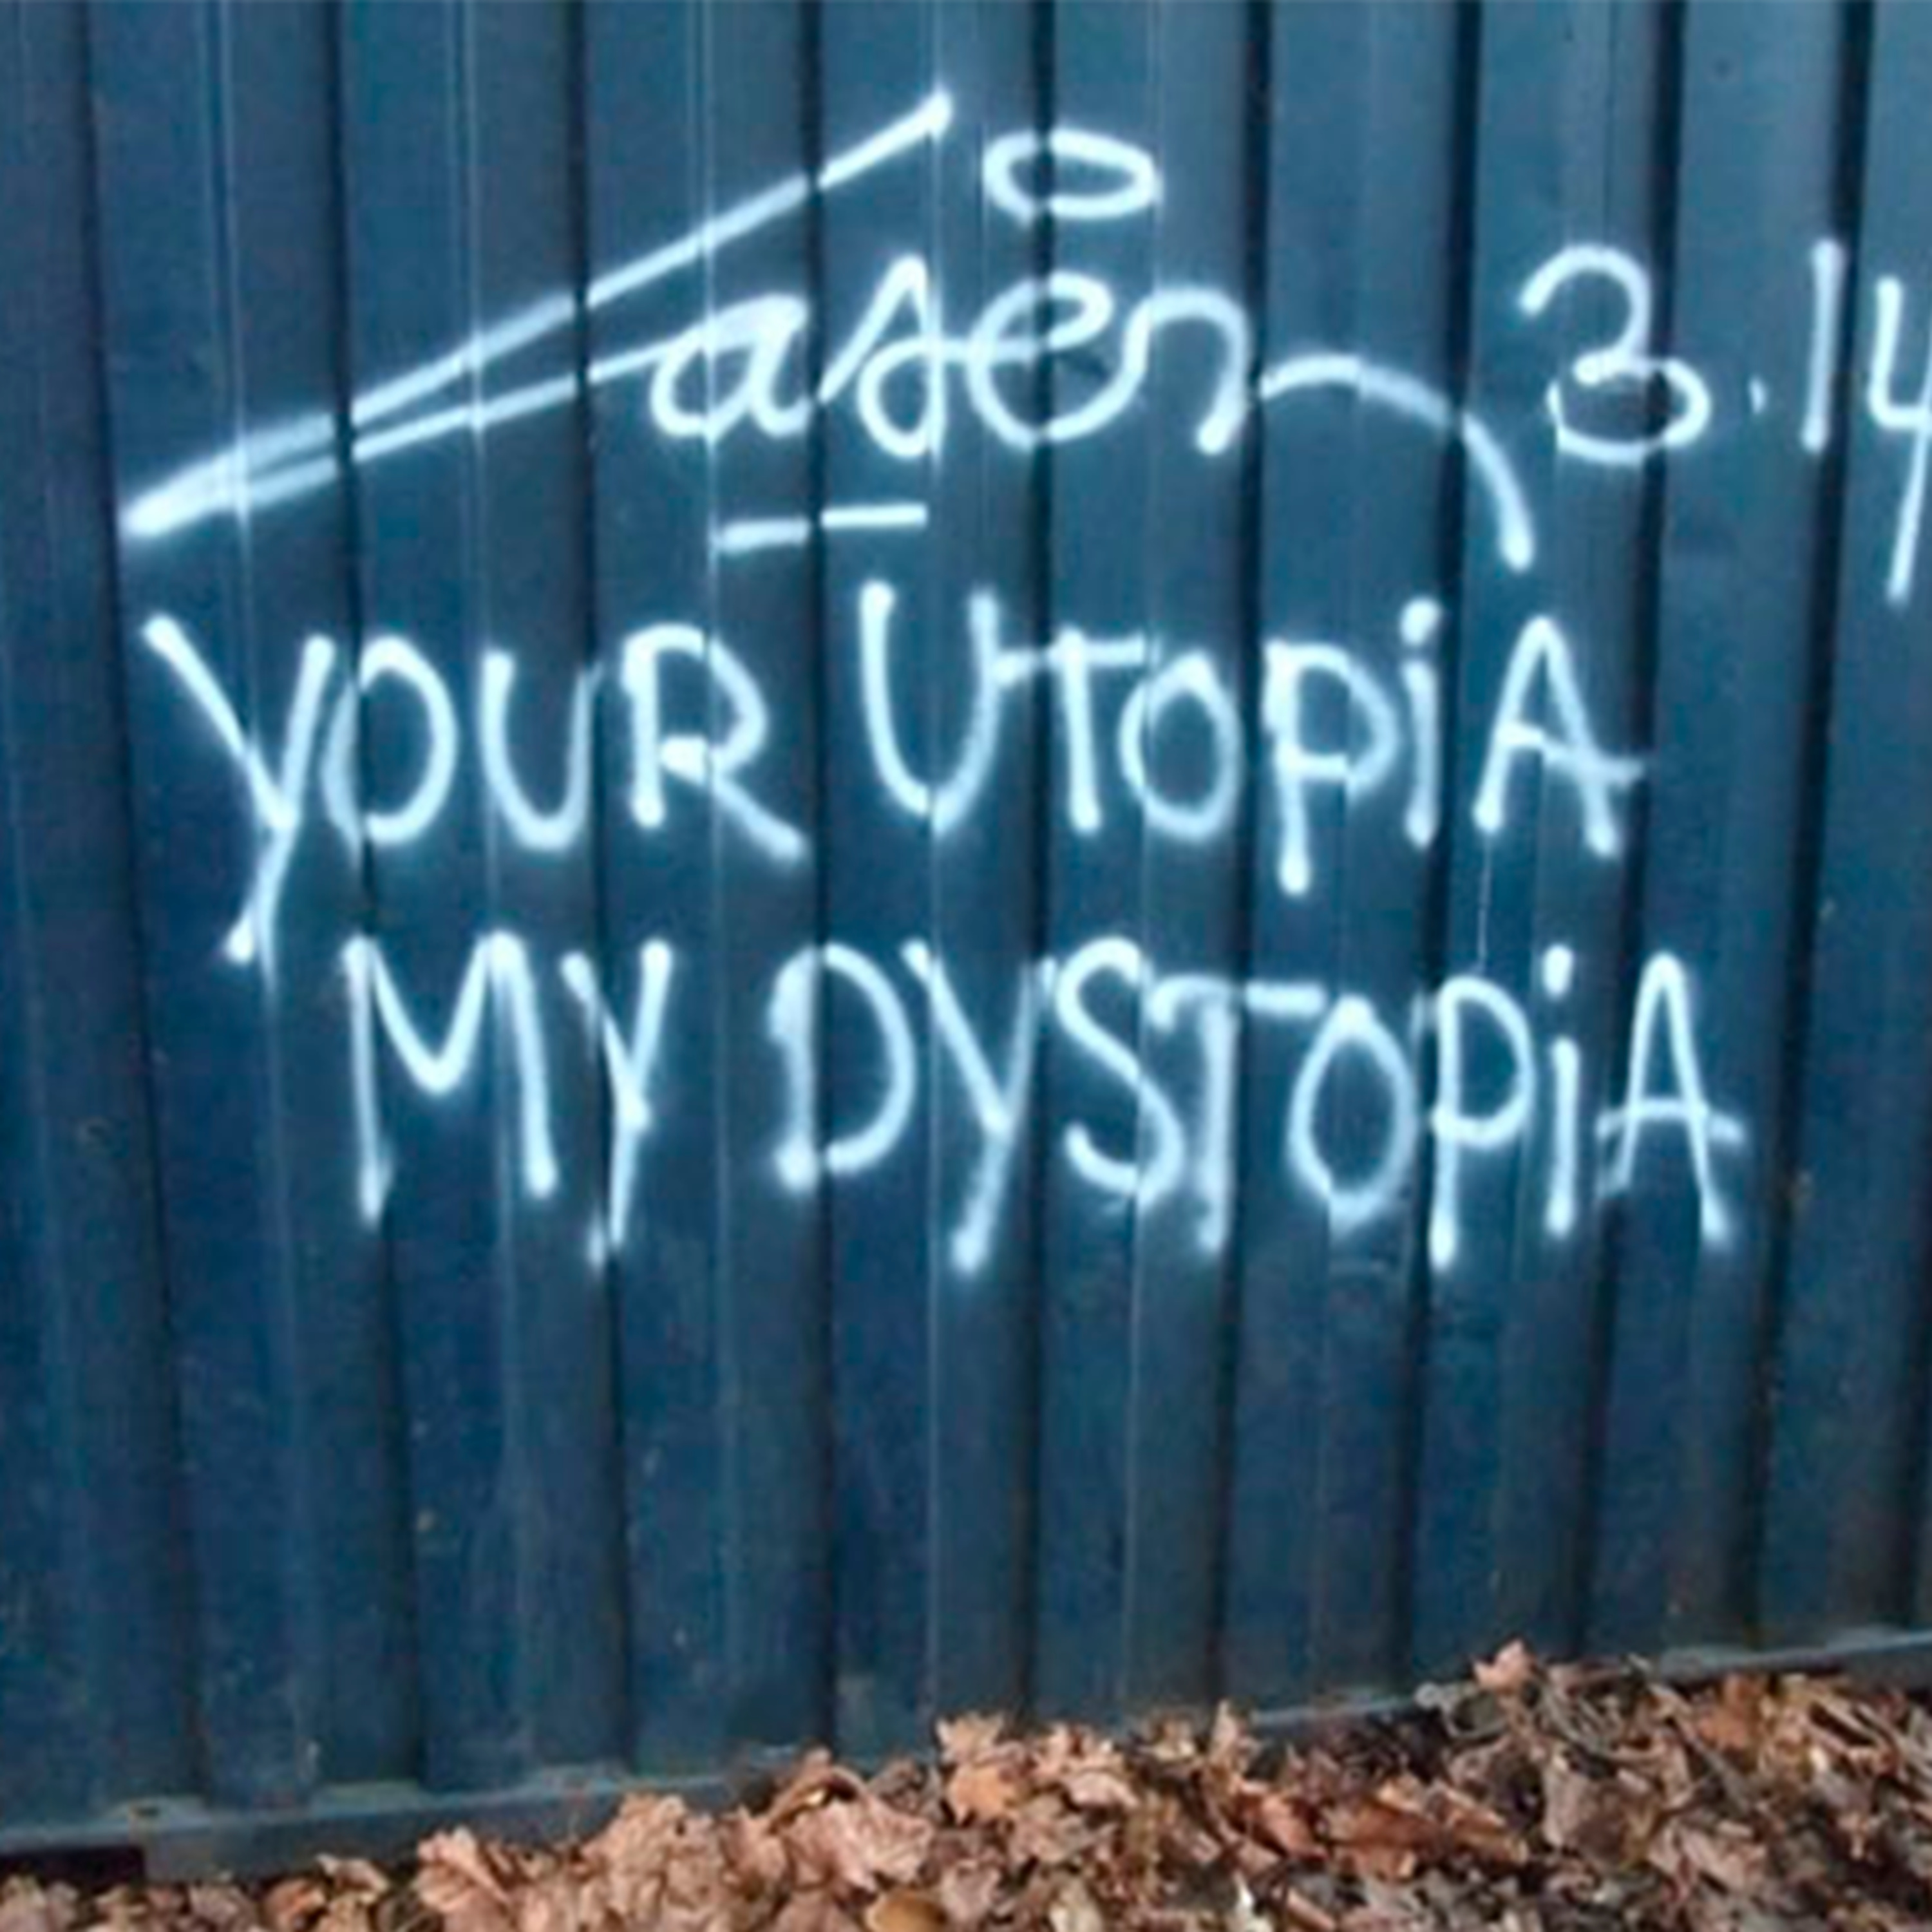 Laser 3.14
YOUR UTOPiA
MY DYSTOPiA